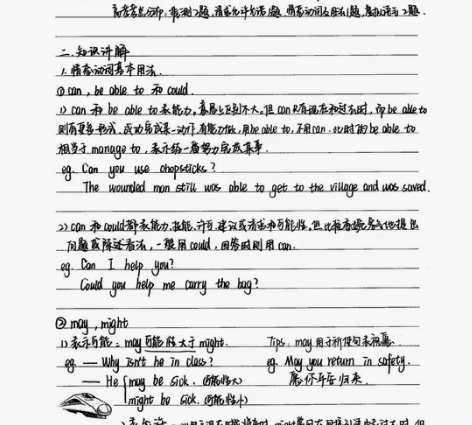 二、知识讲解
1. 情态动词基本用法.
① can, be able to 和 could.
1) can 和 be able to 表能力, 意思上区别不大。但 can 只有现在和过去时, 而 be able to
则有更多形式. 成功完成某一动作, 有能力做, 用 be able to, 不用 can. 此时的 be able to
相当于 manage to, 表示经一番努力完成某事.
eg. Can you use chopsticks?
The wounded man still was able to get to the village and was saved.
2) can 和 could 都表能力、技能、许可、建议或请求和可能性. 但比较委婉客气地提出
问题或陈述看法, 一般用 could, 回答时则用 can.
eg. Can I help you?
Could you help me carry the bag?
② may, might
1) 表示可能: may 可能性大于 might. Tips: may 用于祈使句表祝愿.
eg. — Why isn't he in class? eg. May you return in safety.
— He may be sick. (可能性大) 愿你平安归来.
might be sick. (可能性小)